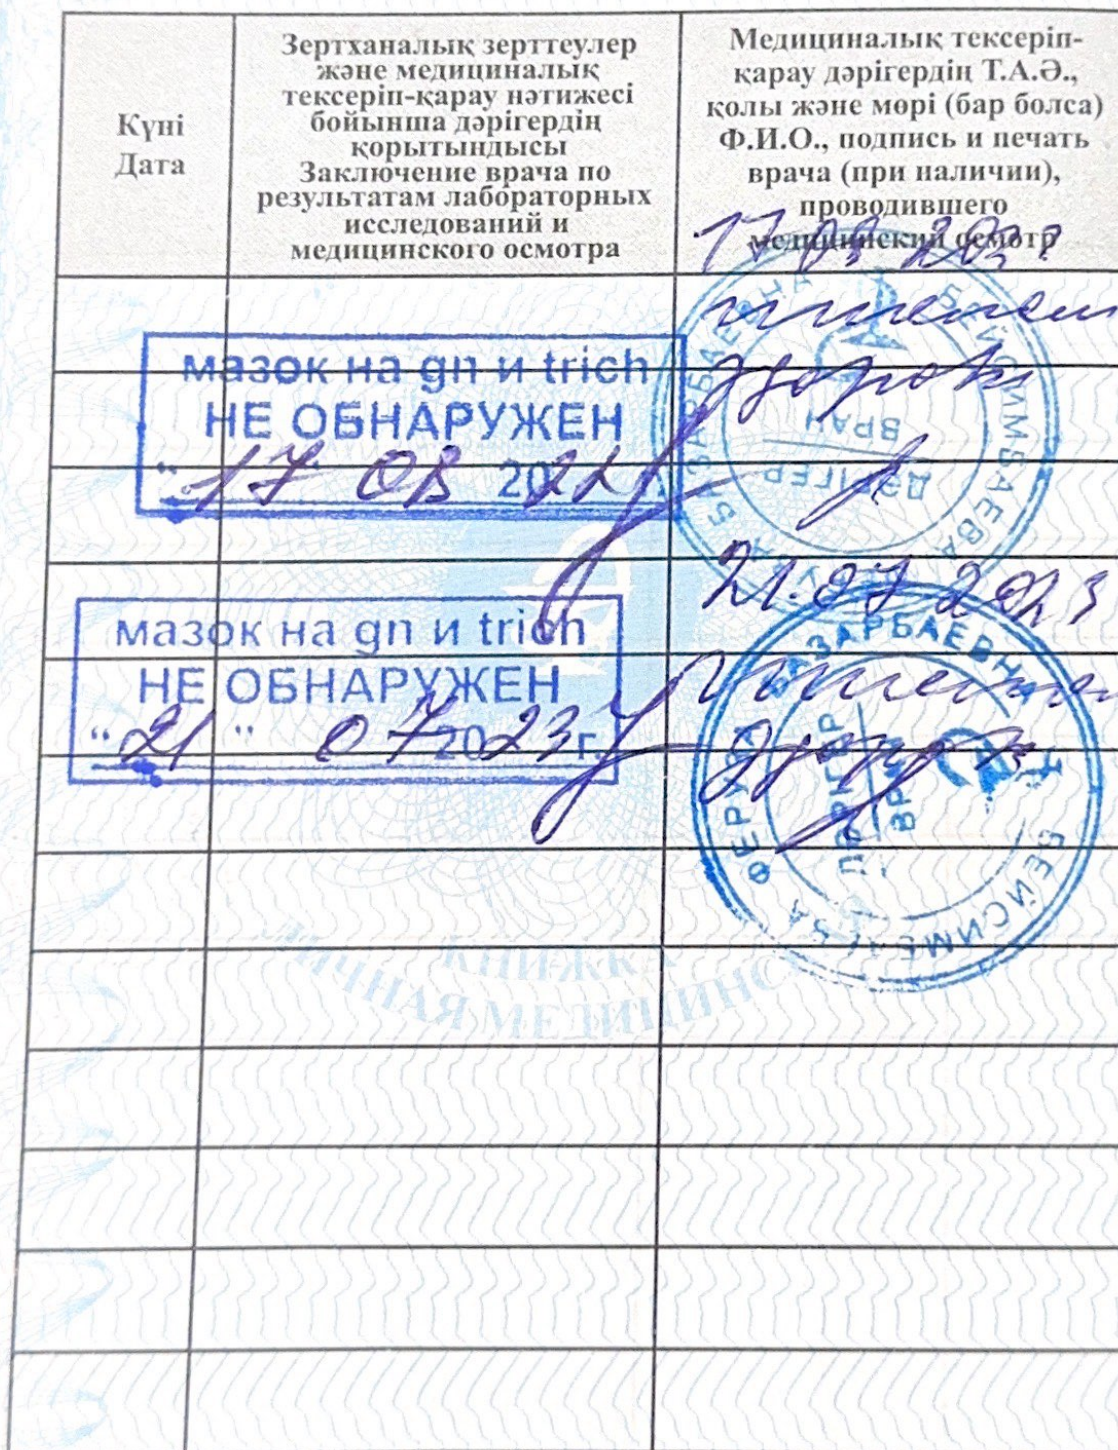 Күні
Дата
Зертханалық зерттеулер
және медициналық
тексеріп-қарау нәтижесі
бойынша дәрігердің
қорытындысы
Заключение врача по
результатам лабораторных
исследований и
медицинского осмотра
Медициналық тексеріп-
қарау дәрігердің Т.А.Ә.,
қолы және мөрі (бар болса)
Ф.И.О., подпись и печать
врача (при наличии),
проводившего
медицинский осмотр
мазок на gn и trich
НЕ ОБНАРУЖЕН
"17" 08 2022
здоров
БЕЙСИМБАЕВА
ДӘРІГЕР
ВРАЧ
мазок на gn и trich
НЕ ОБНАРУЖЕН
"21" 07 2023 г.
21.07 2023
здоров
БАЗАРБАЕВНА
ДӘРІГЕР
ВРАЧ
КНИЖКА
ЛИЧНАЯ